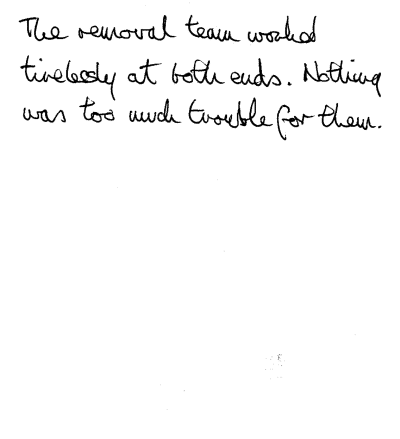 The removal team worked
tirelessly at both ends. Nothing
was too much trouble for them.